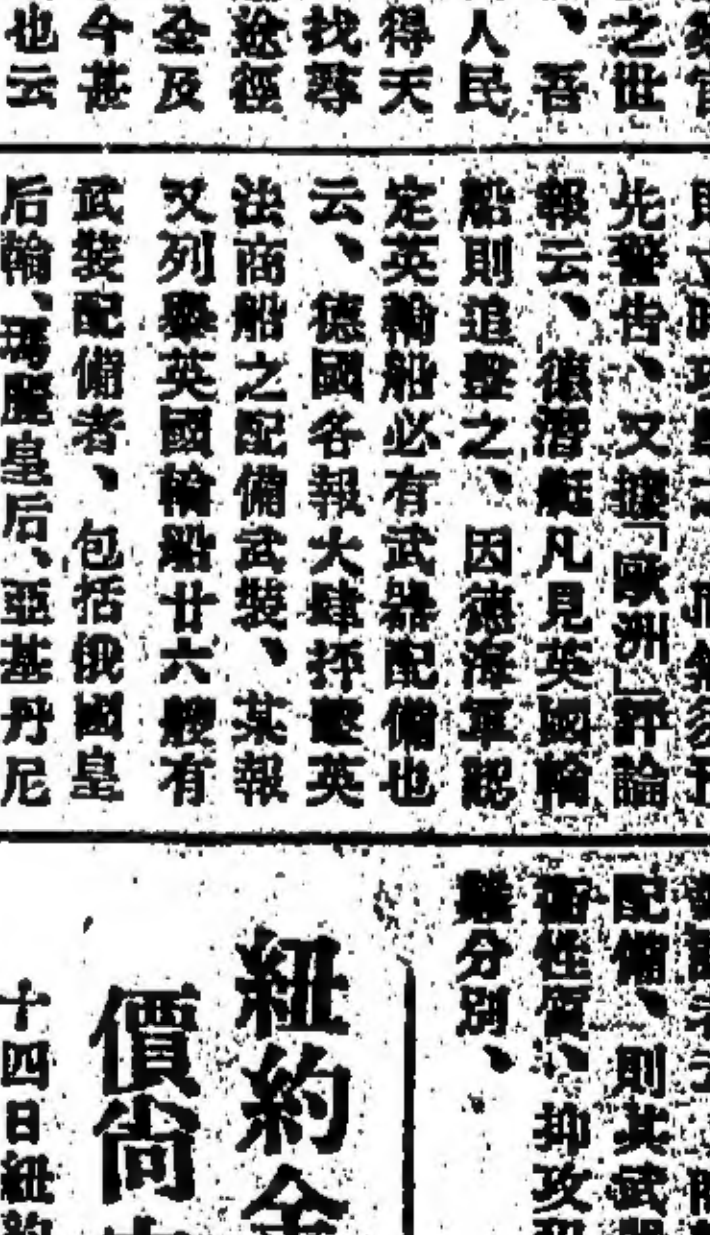 之世
、吾
人民
得天
找尋
途徑
全及
今甚
也云
先警告、又據「歐洲」評論
報云、德潛艇凡見英國輪
船則追擊之、因德海軍認
定英輪船必有武器配備也
云、德國各報大肆抨擊英
法商船之配備武裝、某報
又列舉英國輪船廿六艘有
武裝配備者、包括俄國皇
后輪、瑪麗皇后、亞基丹尼
配備、則其武
性質、抑攻
分別、
紐約金
價尚
十四日紐約